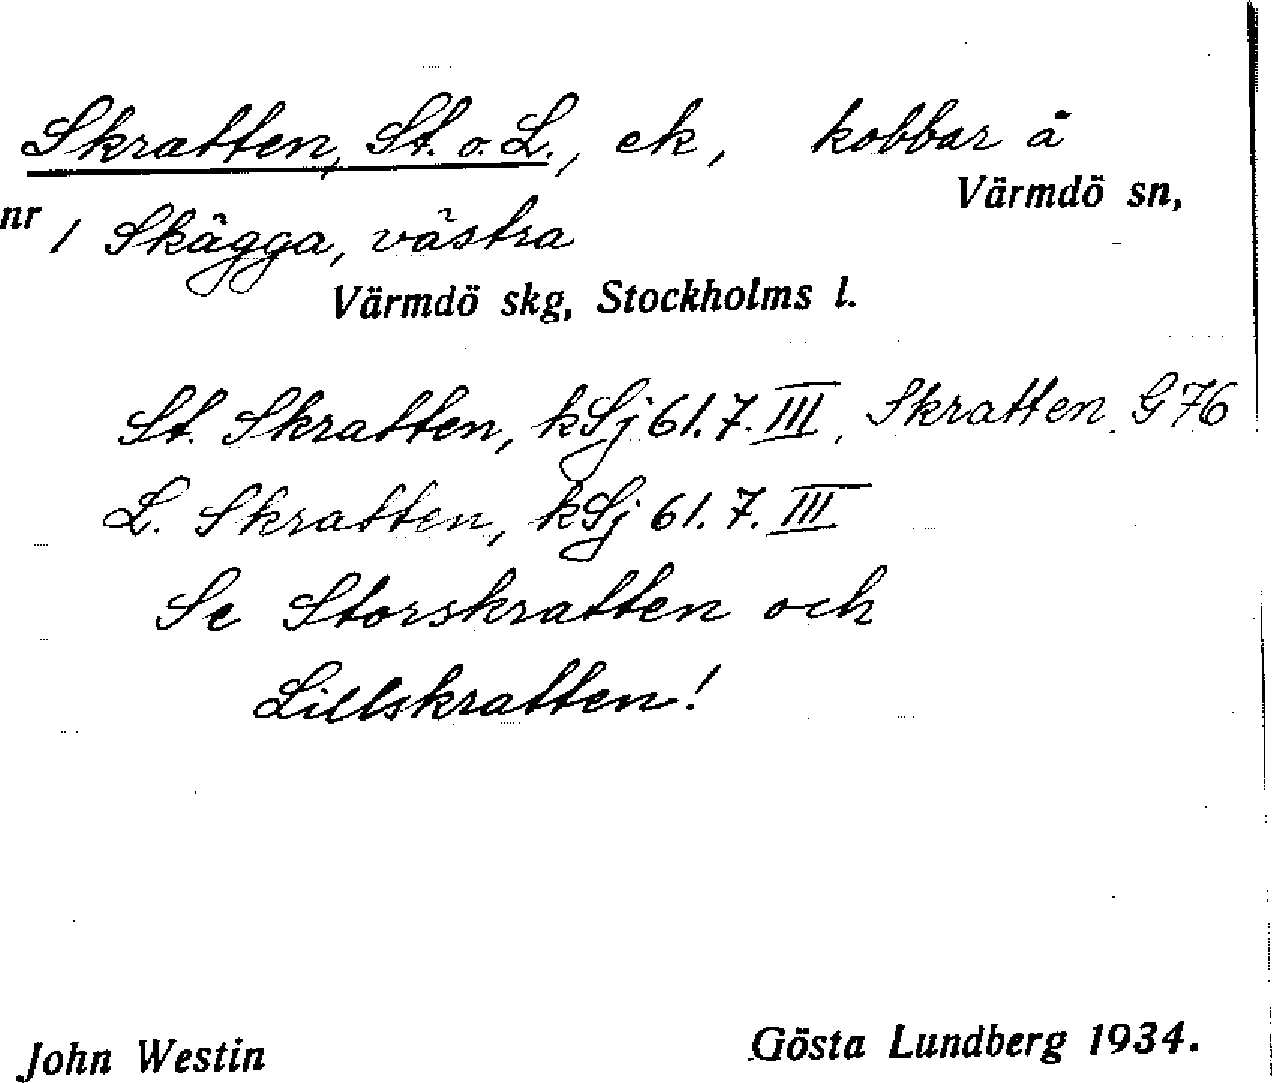 Skratten, St. o. L., ek, kobbar å
Värmdö sn,
nr 1 Skägga, västra
Värmdö skg, Stockholms l.
St. Skratten, kSj 61.7.III, Skratten G76
L. Skratten, kSj 61.7.III
Se Storskratten och
Lillskratten!
John Westin Gösta Lundberg 1934.